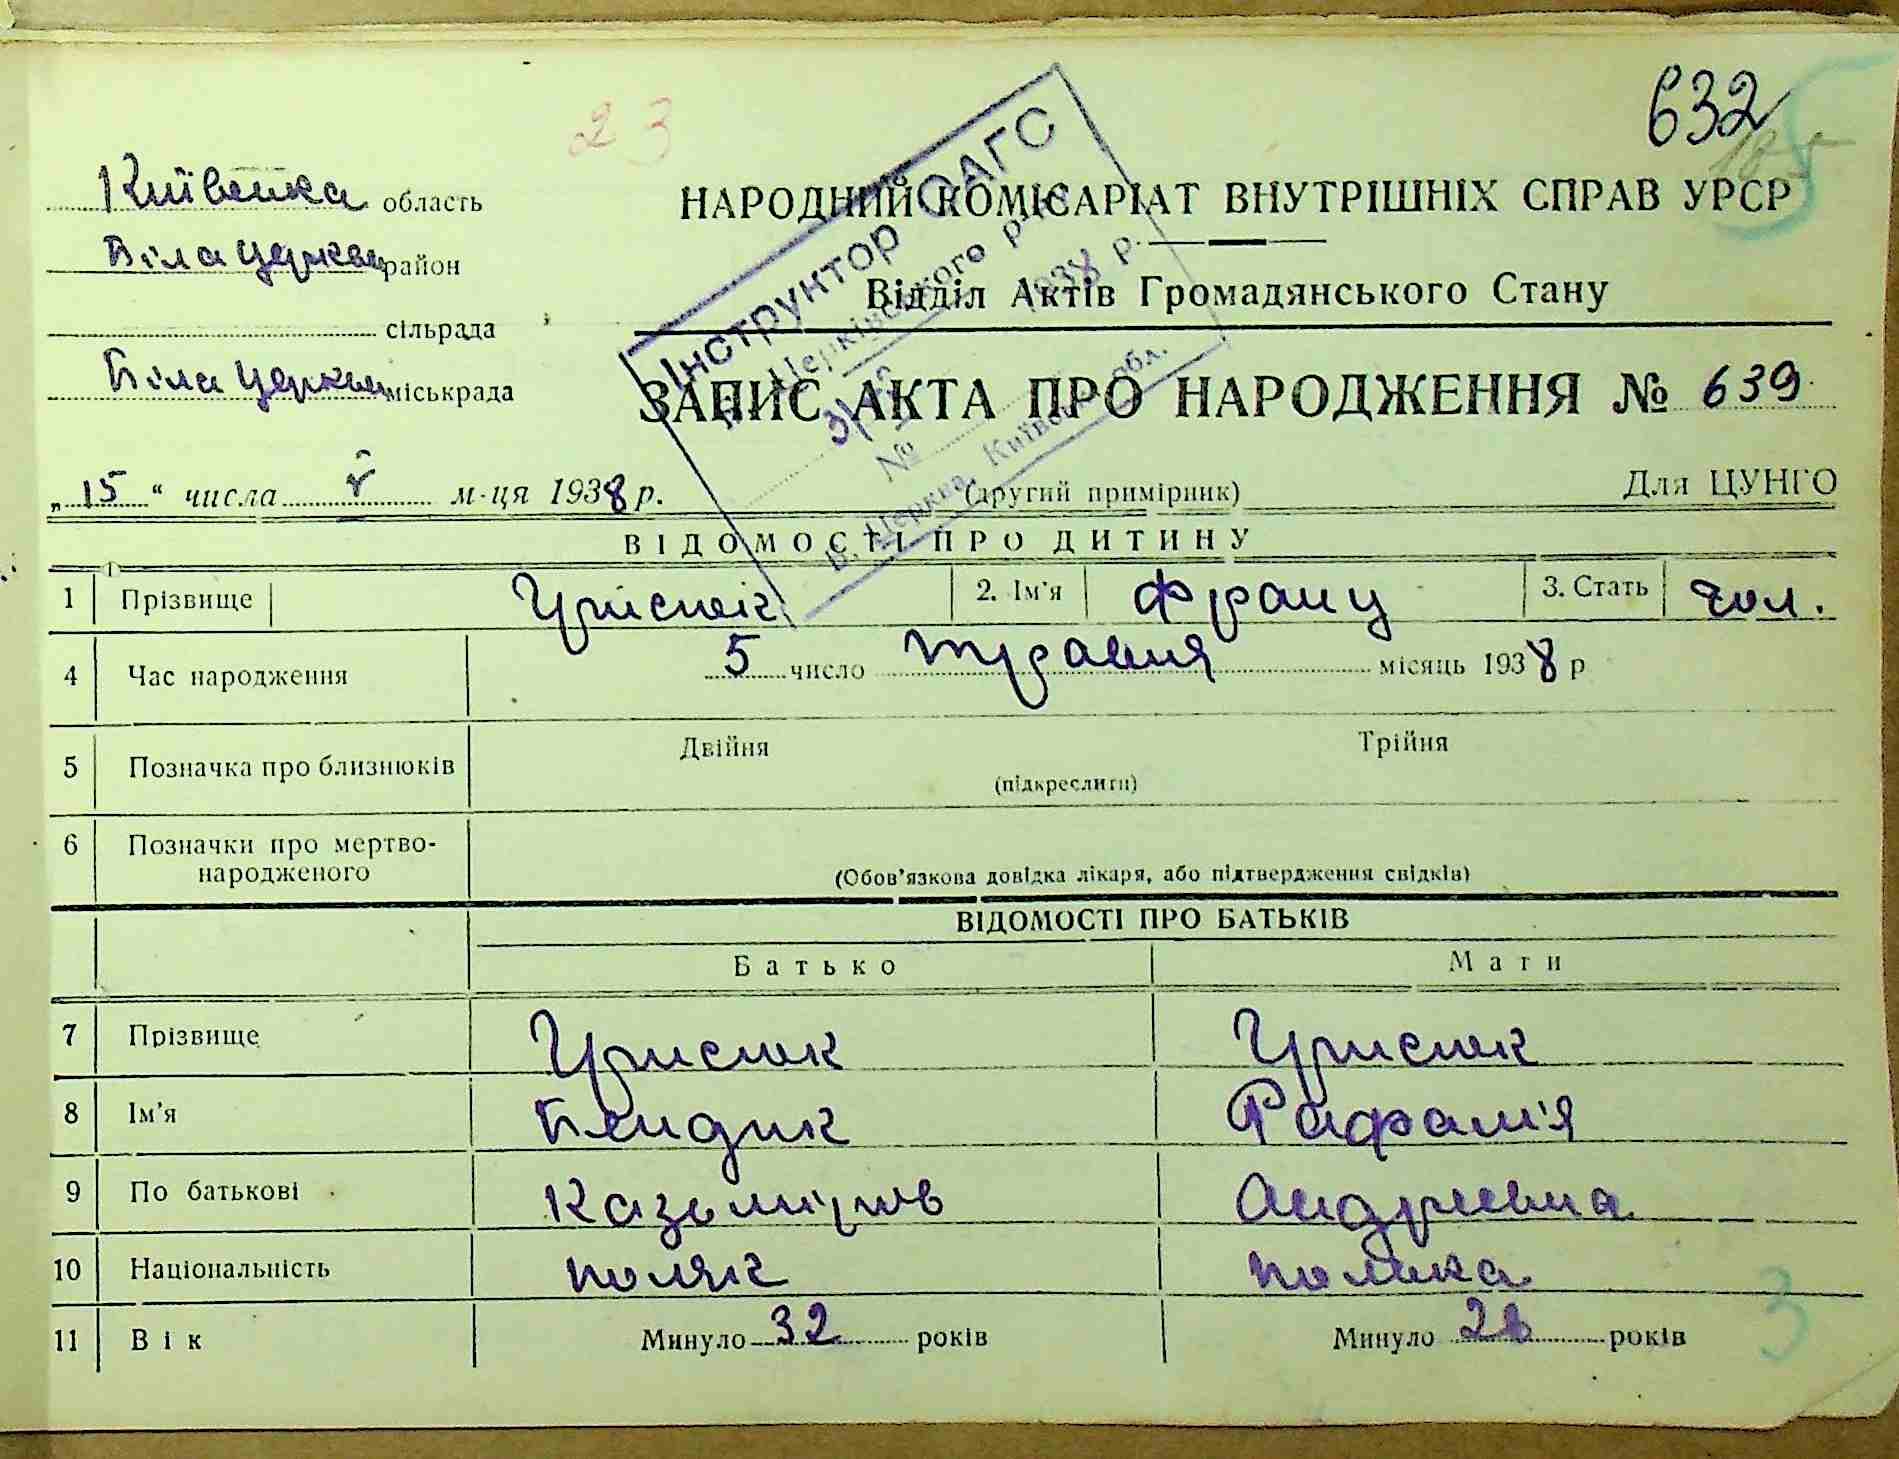 632
23
185
Київська область
НАРОДНИЙ КОМІСАРІАТ ВНУТРІШНІХ СПРАВ УРСР
Біла Церква район
Відділ Актів Громадянського Стану
сільрада
Біла Церква міськрада
ЗАПИС АКТА ПРО НАРОДЖЕННЯ № 639
Інструктор ОАГС
Церківського р-ну
1938 р.
№
Б. Церква, Київської обл.
„15“ числа V м-ця 1938 р.
(другий примірник)
Для ЦУНГО
ВІДОМОСТІ ПРО ДИТИНУ
1 Прізвище Гриснек 2. Ім'я Франц 3. Стать чол.
4 Час народження 5 число травня місяць 1938 р
5 Позначка про близнюків Двійня Трійня
(підкреслити)
6 Позначки про мертво-
народженого
(Обов'язкова довідка лікаря, або підтвердження свідків)
ВІДОМОСТІ ПРО БАТЬКІВ
Батько Мати
7 Прізвище
8 Ім'я Бендик Рафалія
9 По батькові Казьміров Андреевна
10 Національність поляк полька
11 Вік Минуло 32 років Минуло років
3